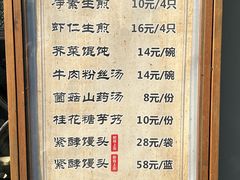 净素生煎 10元/4只
虾仁生煎 16元/4只
荠菜馄饨 14元/碗
牛肉粉丝汤 14元/碗
菌菇山药汤 8元/份
桂花糖芋艿 10元/份
紫酵馒头 28元/袋
紫酵馒头 58元/蓝